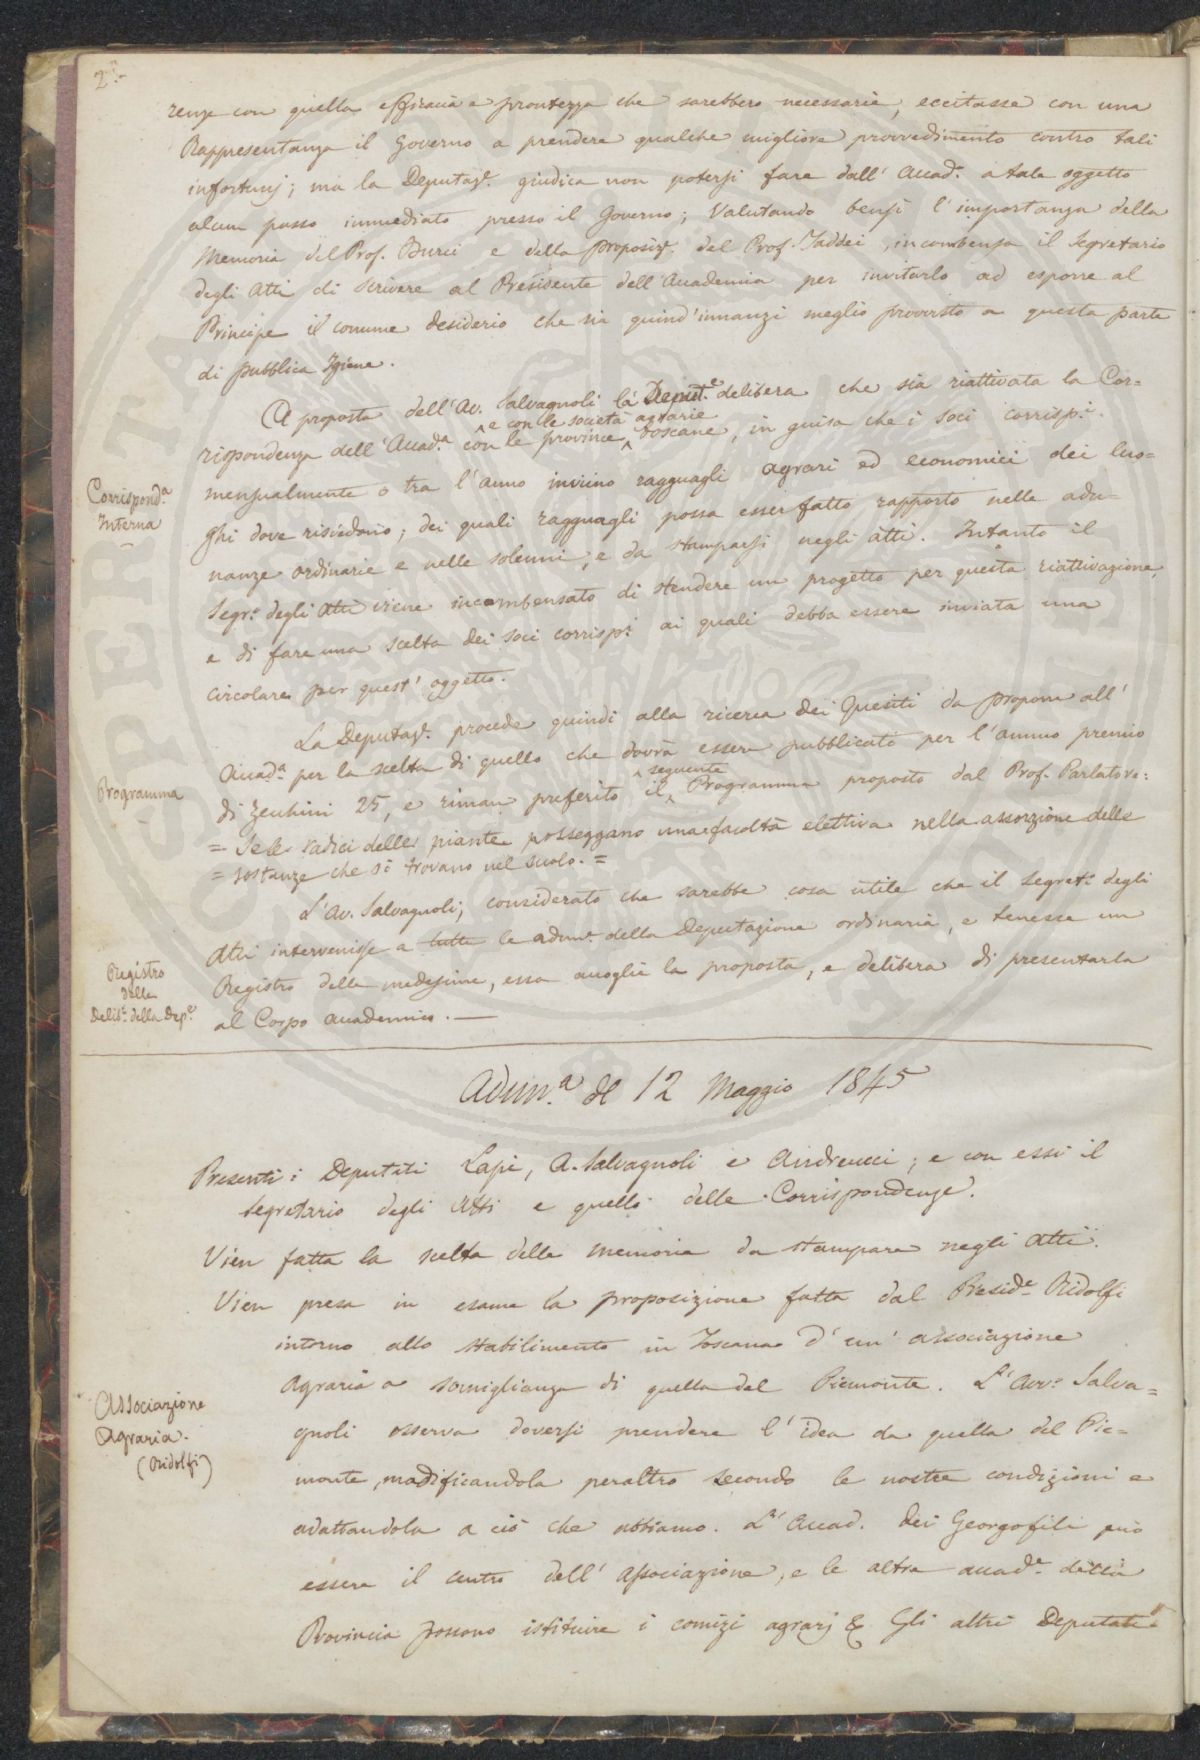 2.
renze con quella efficacia e prontezza che sarebbero necessarie, eccitasse con una
Rappresentanza il Governo a prendere qualche migliore provvedimento contro tali
infortunj; ma la Deputaz.e giudica non potersi fare dall' Accad.a a tale oggetto
alcun passo immediato presso il Governo; Valutando bensì l'importanza della
Memoria del Prof. Burci e della proposiz.e del Prof. Taddei, incombensa il Segretario
degli Atti di scrivere al Presidente dell'Accademia per invitarlo ad esporre al
Principe il comune desiderio che sia quind'innanzi meglio provvisto a questa parte
di pubblica Igiene.
A proposta dell'Av. Salvagnoli la Deput.e delibera che sia riattivata la Cor=
e con le società agrarie
rispondenza dell'Accad.a con le province toscane, in guisa che i Soci corrisp.i
Corrispond.a
Interna
mensualmente o tra l'anno inviino ragguagli agrari ed economici dei luo=
ghi dove risiedono; dei quali ragguagli possa esser fatto rapporto nelle adu=
nanze ordinarie e nelle solenni, e da stamparsi negli atti. Intanto il
Segr.o degli Atti viene incombensato di stendere un progetto per questa riattivazione,
e di fare una scelta dei soci corrisp.i ai quali debba essere inviata una
circolare per quest'oggetto.
La Deputaz.e procede quindi alla ricerca dei Quesiti da proporre all'
Programma
Accad.a per la scelta di quello che dovrà essere pubblicato per l'annuo premio
seguente
di Zecchini 25, e riman preferito il Programma proposto dal Prof. Parlatore:
= Se le radici delle piante posseggano una facoltà elettiva nella assorzione delle
= sostanze che si trovano nel suolo. =
L'Av. Salvagnoli, considerato che sarebbe cosa utile che il Segret.o degli
Registro
delle
Delib.e della Dep.e
Atti intervenisse a tutte le adun.e della Deputazione ordinaria, e tenesse un
Registro delle medesime, essa accoglie la proposta, e delibera di presentarla
al Corpo accademico. —
Adun.a del 12 Maggio 1845
Presenti i Deputati Lapi, A. Salvagnoli e Andreucci; e con essi il
Segretario degli Atti e quello delle Corrispondenze.
Vien fatta la scelta delle memorie da stampare negli Atti.
Vien presa in esame la proposizione fatta dal Presid.e Ridolfi
intorno allo stabilimento in Toscana d'un'associazione
Associazione
Agraria.
(Ridolfi)
Agraria a somiglianza di quella del Piemonte. L'Avv.o Salva=
gnoli osserva doversi prendere l'idea da quella del Pie=
monte, modificandola peraltro secondo le nostre condizioni e
adattandola a ciò che abbiamo. L'Accad. dei Georgofili può
essere il centro dell'Associazione, e le altre accad.e della
Provincia possono istituire i comizi agrarj &. Gli altri Deputati